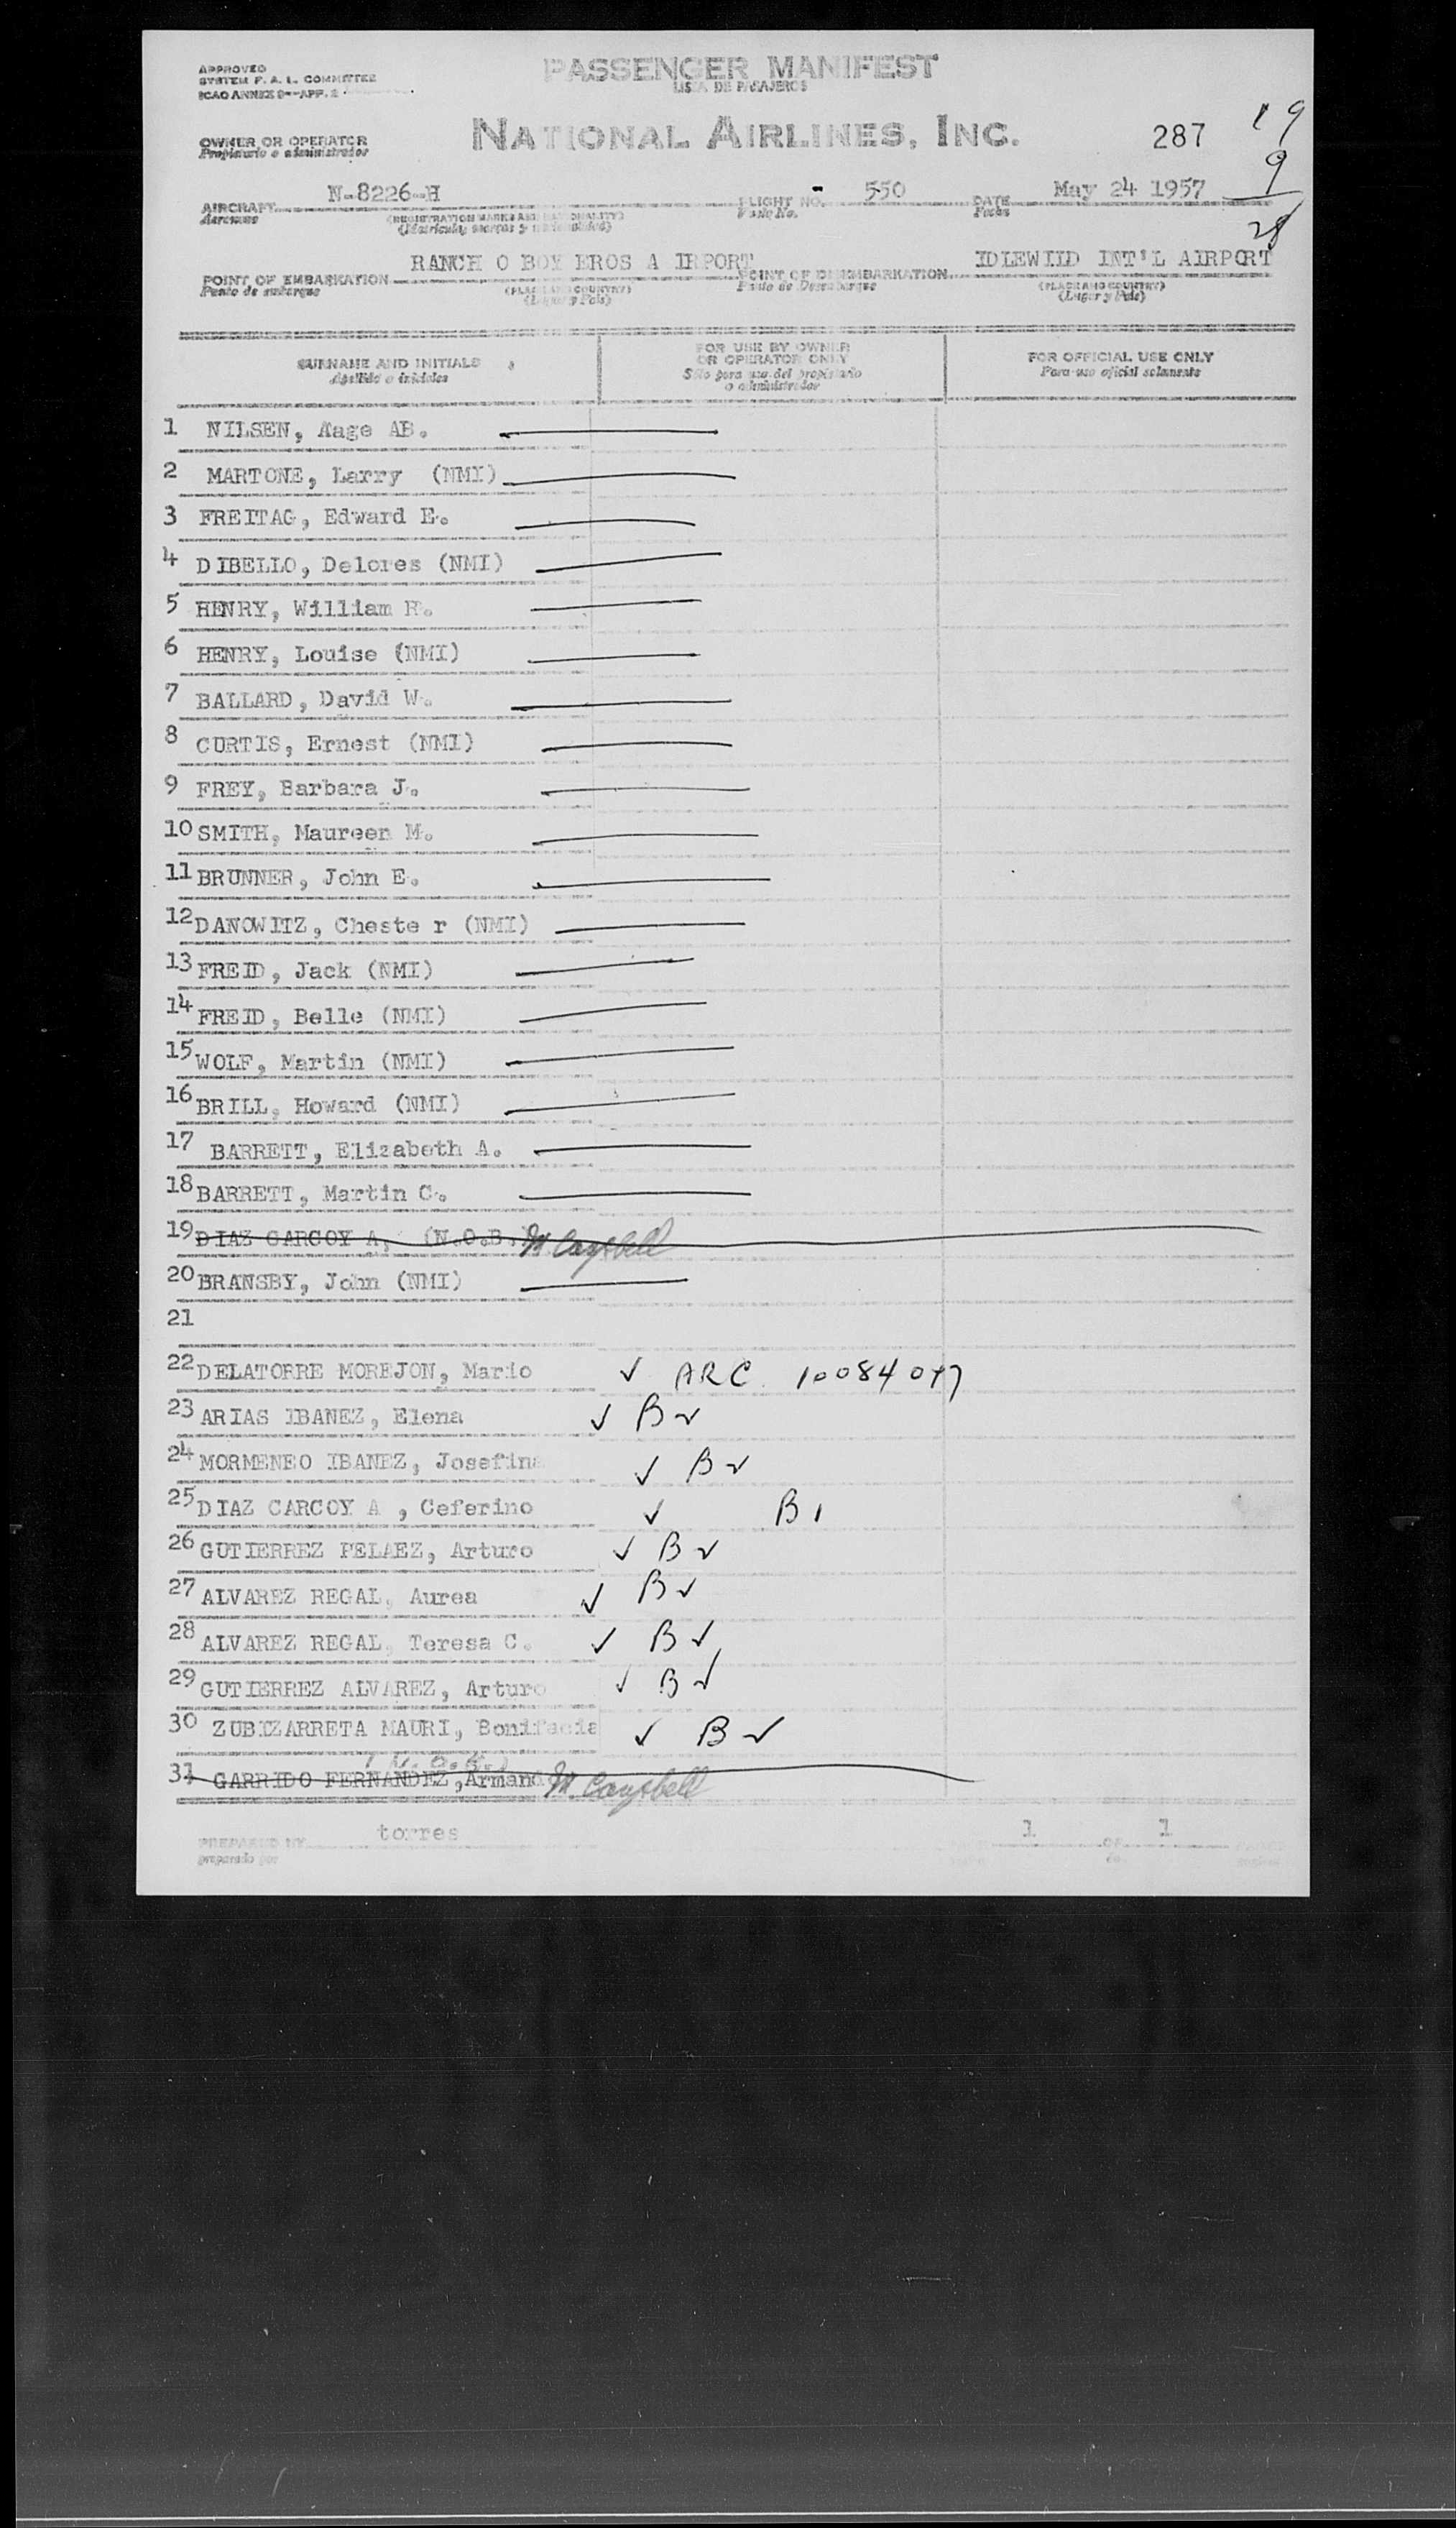 APPROVED
SYSTEM F. A. L. COMMITTEE
ICAO ANNEX 9--APP. 2
PASSENGER MANIFEST
LISTA DE PASAJEROS
OWNER OR OPERATOR
Propietario o administrador
NATIONAL AIRLINES, INC.
287
19
9
28
AIRCRAFT N-8226-H
Aeronave
(REGISTRATION MARKS AND NATIONALITY)
(Matricula, marcas y nacionalidad)
FLIGHT NO. - 550
Vuelo No.
DATE May 24 1957
Fecha
POINT OF EMBARKATION RANCH O BOY EROS A IRPORT
Punto de embarque
(PLACE AND COUNTRY)
(Lugar y Pais)
POINT OF DISEMBARKATION IDLEWILD INT'L AIRPORT
Punto de Desembarque
(PLACE AND COUNTRY)
(Lugar y Pais)
SURNAME AND INITIALS
Apellido e iniciales
FOR USE BY OWNER
OR OPERATOR ONLY
Sólo para uso del propietario
o administrador
FOR OFFICIAL USE ONLY
Para uso oficial solamente
1 NILSEN, Aage AB.
2 MARTONE, Larry (NMI)
3 FREITAG, Edward E.
4 DIBELLO, Delores (NMI)
5 HENRY, William R.
6 HENRY, Louise (NMI)
7 BALLARD, David W.
8 CURTIS, Ernest (NMI)
9 FREY, Barbara J.
10 SMITH, Maureen M.
11 BRUNNER, John E.
12 DANOWITZ, Cheste r (NMI)
13 FREID, Jack (NMI)
14 FREID, Belle (NMI)
15 WOLF, Martin (NMI)
16 BRILL, Howard (NMI)
17 BARRETT, Elizabeth A.
18 BARRETT, Martin C.
19 DIAZ CARCOY A, (N.O.B.)
20 BRANSBY, John (NMI)
21
22 DELATORRE MOREJON, Mario ✓ ARC
23 ARIAS IBANEZ, Elena ✓ B ✓
24 MORMENEO IBANEZ, Josefina ✓ B ✓
25 DIAZ CARCOY A , Ceferino ✓ B
26 GUTIERREZ PELAEZ, Arturo ✓ B ✓
27 ALVAREZ REGAL, Aurea ✓ B ✓
28 ALVAREZ REGAL, Teresa C. ✓ B ✓
29 GUTIERREZ ALVAREZ, Arturo ✓ B ✓
30 ZUBIZARRETA MAURI, Bonifacia ✓ B ✓
31 GARRIDO FERNANDEZ,Armand
PREPARED BY torres
preparado por
1 OF 1